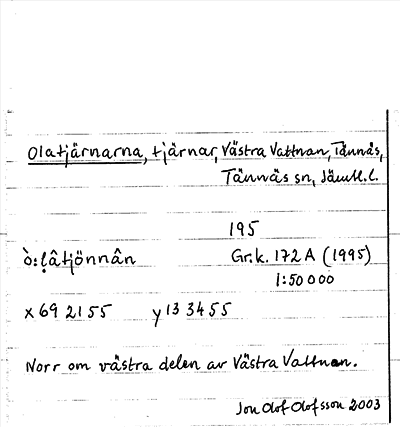 Olatjärnarna, tjärnar, Västra Vattnan, Tännäs,
Tännäs sn, Jämtl. l.
195
ò:ḷâtjönnân Gr.k. 172 A (1995)
1:50 000
x 69 21 55 y 13 34 55
Norr om västra delen av Västra Vattnan.
Jon Olof Olofsson 2003